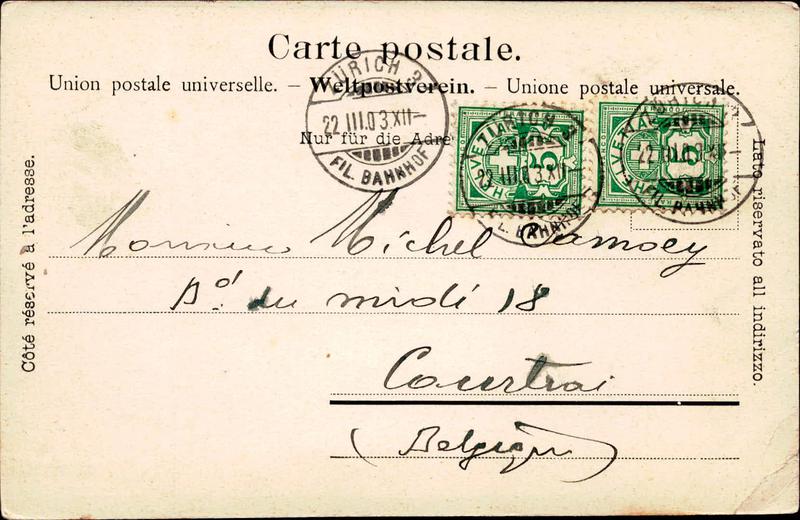 Carte postale.
Union postale universelle. – Weltpostverein. – Unione postale universale.
ZÜRICH 2
22.III.03.XII–
FIL. BAHNHOF
Nur für die Adre
HELVETIA
5
22.III.03.XII–
FIL. BAHNHOF
HELVETIA
5
22.III.03.XII–
FIL. BAHNHOF
Côté réservé à l'adresse.
Lato riservato all indirizzo.
Monsieur Michel
Bd. du midi 18
Courtrai
(Belgique)